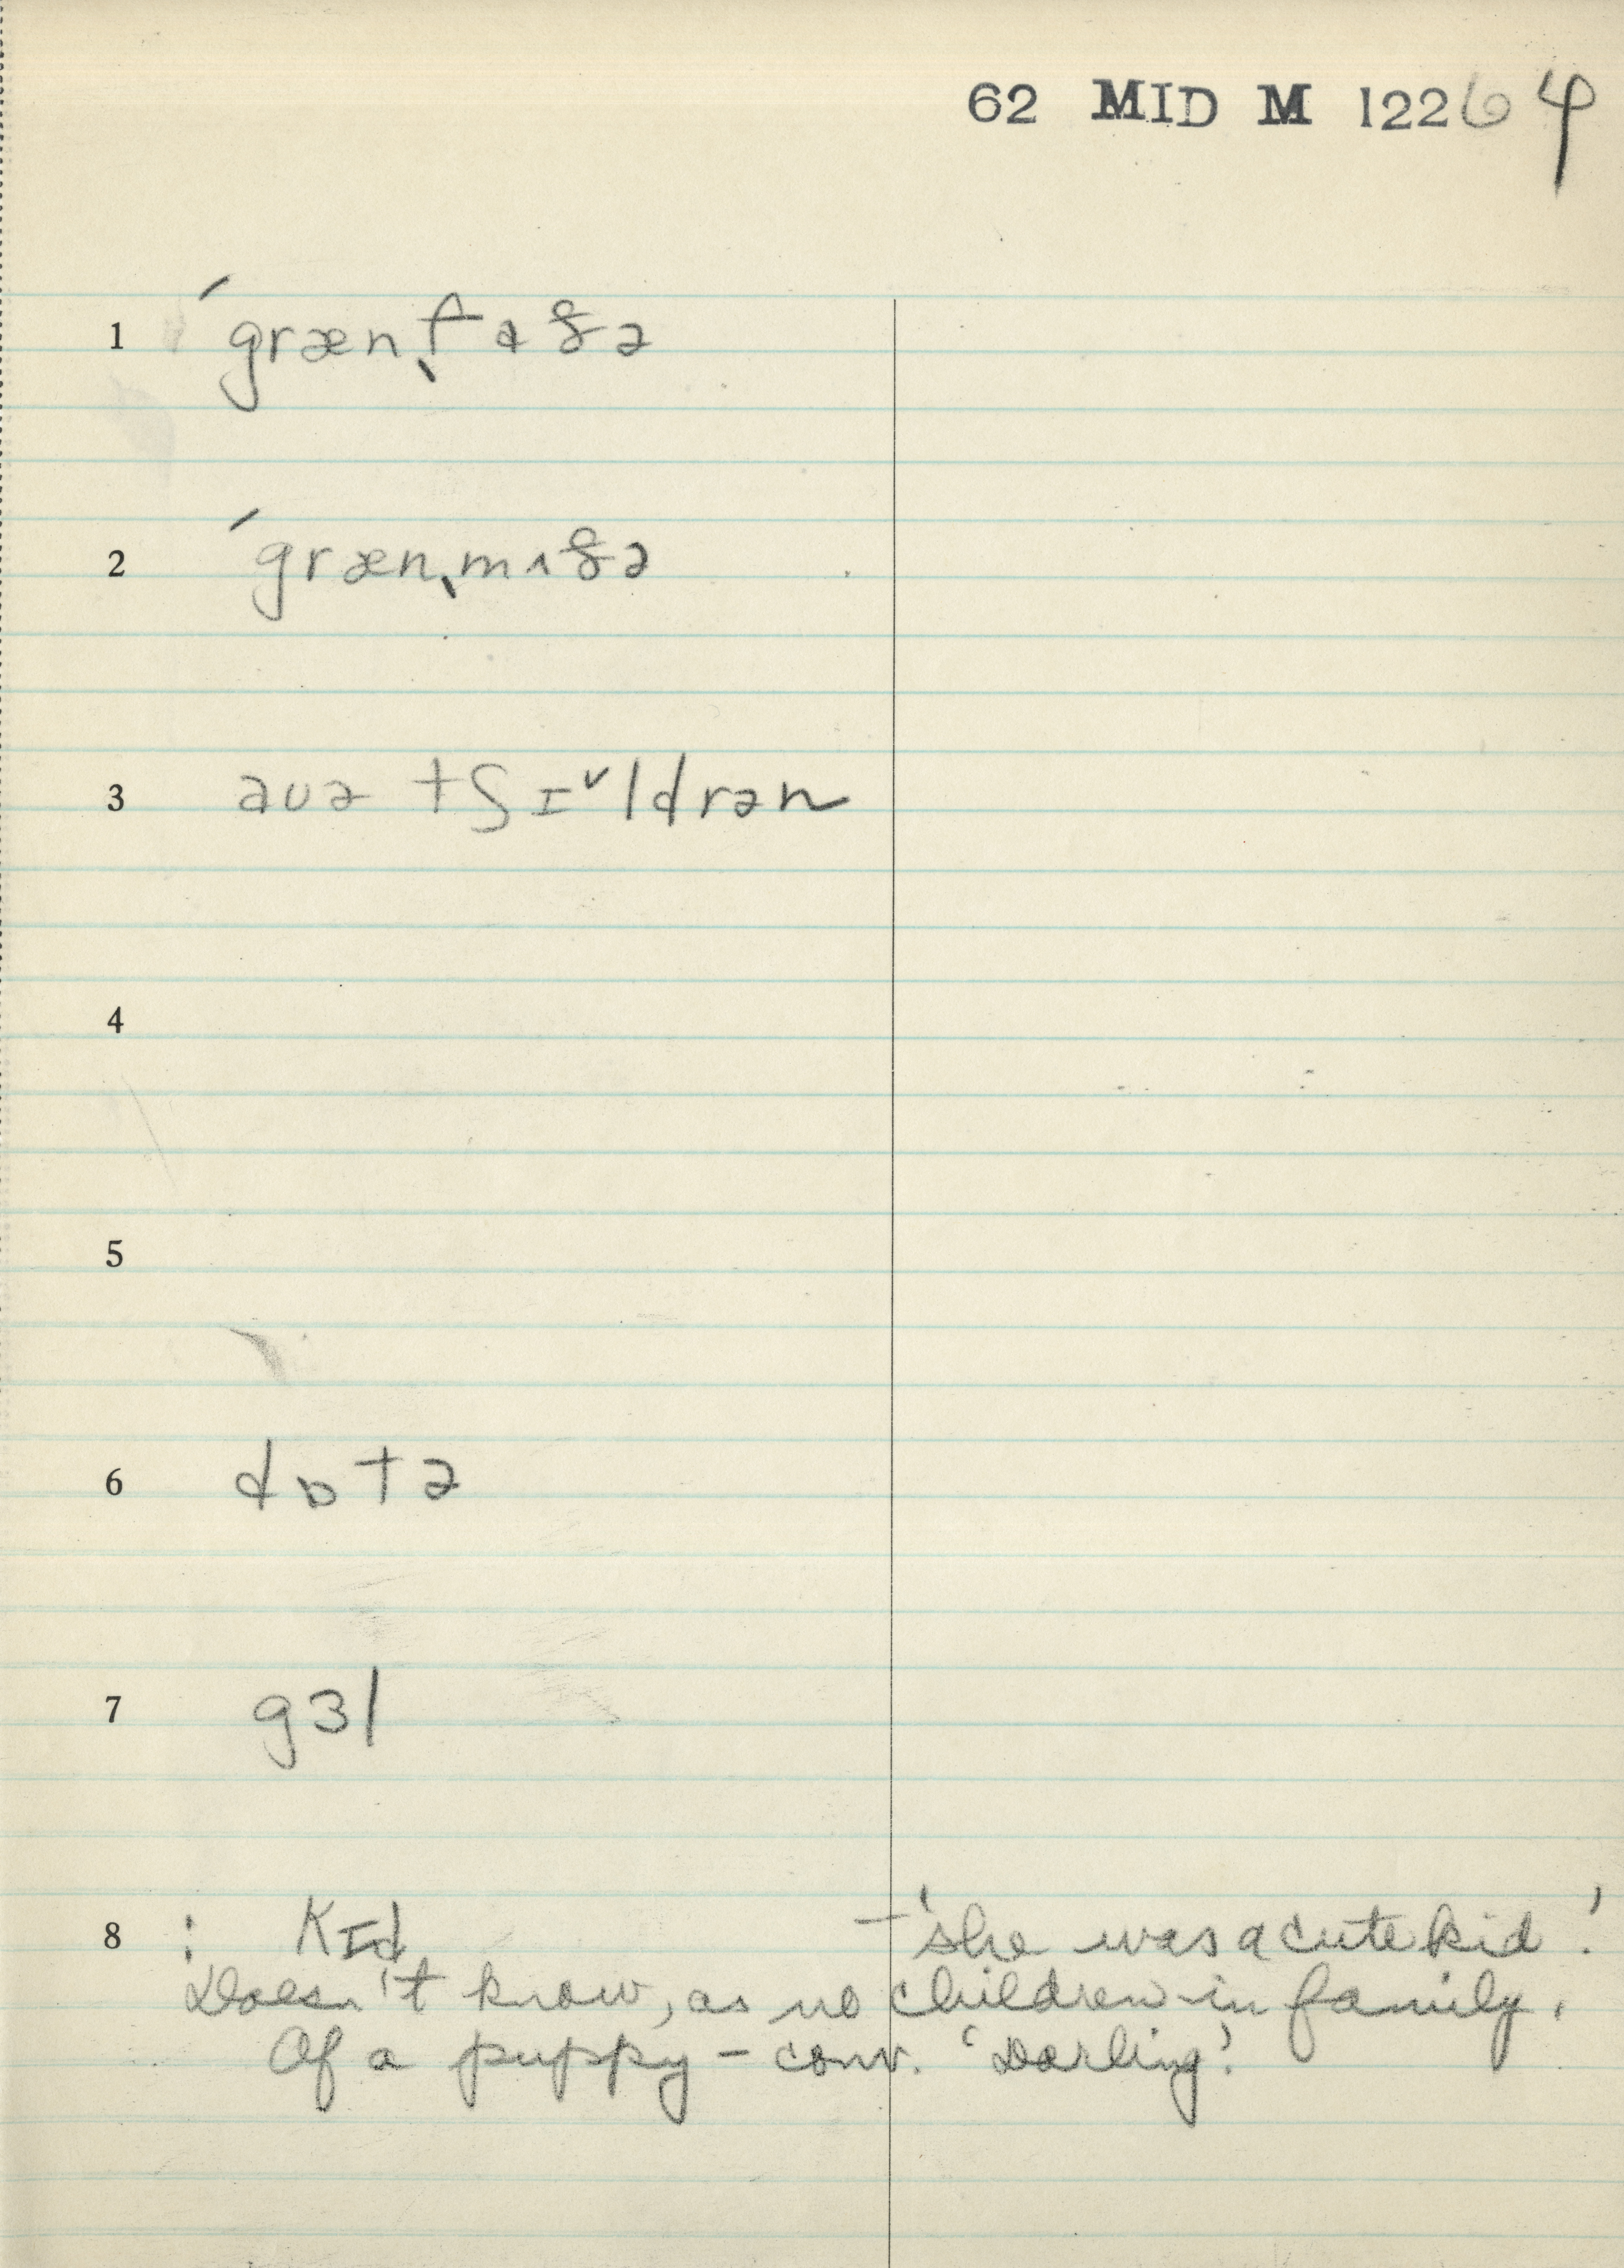 62 MID M 12264
1 ´græn͵faðə
2 ´græn͵mʌðə
3 aʊə tʃɪ˅ldrən
4
5
6 dɒtə
7 gɜl
8 : kɪd – 'she was a cute kid'.
Doesn't know, as no children in family.
Of a puppy – conv. 'Darling'.